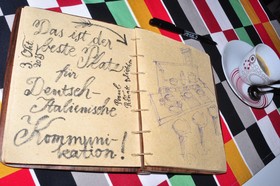 Das ist der
beste Platz
für
Deutsch-
Italienische
Kommuni-
kation!
3. Okt.